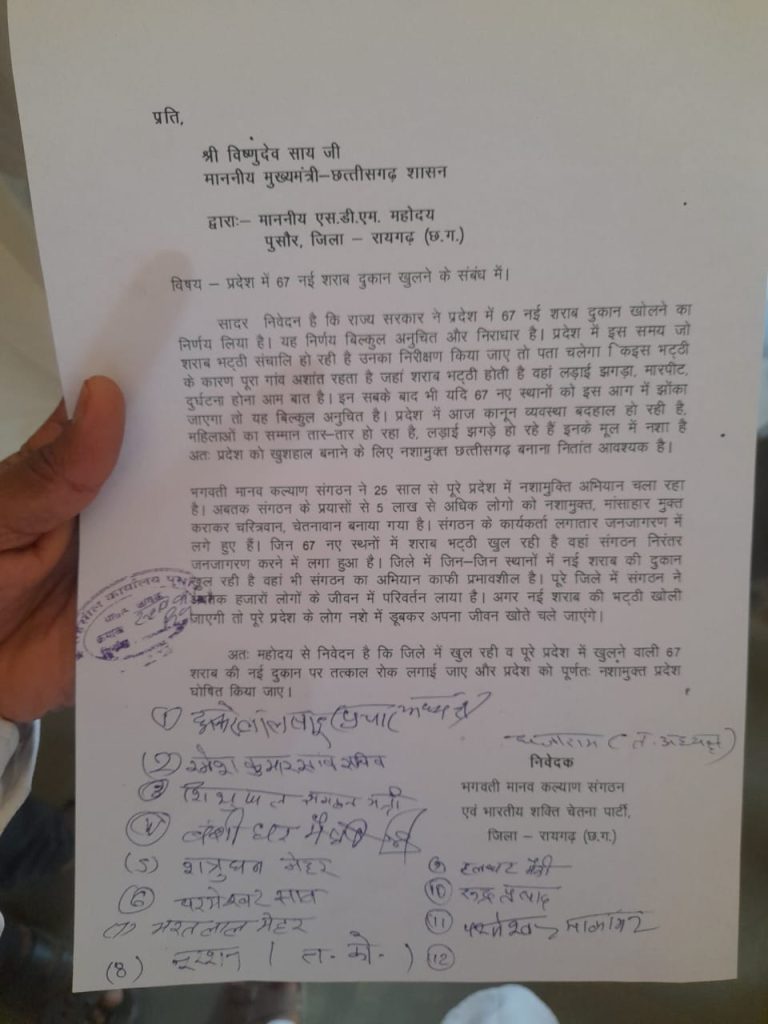 प्रति,
श्री विष्णुदेव साय जी
माननीय मुख्यमंत्री–छत्तीसगढ़ शासन
द्वाराः– माननीय एस.डी.एम. महोदय
पुसौर, जिला – रायगढ़ (छ.ग.)
विषय – प्रदेश में 67 नई शराब दुकान खुलने के संबंध में।
सादर निवेदन है कि राज्य सरकार ने प्रदेश में 67 नई शराब दुकान खोलने का
निर्णय लिया है। यह निर्णय बिल्कुल अनुचित और निराधार है। प्रदेश में इस समय जो
शराब भट्ठी संचालि हो रही है उनका निरीक्षण किया जाए तो पता चलेगा िकइस भट्ठी
के कारण पूरा गांव अशांत रहता है जहां शराब भट्ठी होती है वहां लड़ाई झगड़ा, मारपीट,
दुर्घटना होना आम बात है। इन सबके बाद भी यदि 67 नए स्थानों को इस आग में झोंका
जाएगा तो यह बिल्कुल अनुचित है। प्रदेश में आज कानून व्यवस्था बदहाल हो रही है,
महिलाओं का सम्मान तार–तार हो रहा है, लड़ाई झगड़े हो रहे हैं इनके मूल में नशा है
अतः प्रदेश को खुशहाल बनाने के लिए नशामुक्त छत्तीसगढ़ बनाना नितांत आवश्यक है।
भगवती मानव कल्याण संगठन ने 25 साल से पूरे प्रदेश में नशामुक्ति अभियान चला रहा
है। अबतक संगठन के प्रयासों से 5 लाख से अधिक लोगो को नशामुक्त, मांसाहार मुक्त
कराकर चरित्रवान, चेतनावान बनाया गया है। संगठन के कार्यकर्ता लगातार जनजागरण में
लगे हुए हैं। जिन 67 नए स्थनों में शराब भट्ठी खुल रही है वहां संगठन निरंतर
जनजागरण करने में लगा हुआ है। जिले में जिन–जिन स्थानों में नई शराब की दुकान
खुल रही है वहां भी संगठन का अभियान काफी प्रभावशील है। पूरे जिले में संगठन ने
अबतक हजारों लोगों के जीवन में परिवर्तन लाया है। अगर नई शराब की भट्ठी खोली
जाएगी तो पूरे प्रदेश के लोग नशे में डूबकर अपना जीवन खोते चले जाएंगे।
अतः महोदय से निवेदन है कि जिले में खुल रही व पूरे प्रदेश में खुलने वाली 67
शराब की नई दुकान पर तत्काल रोक लगाई जाए और प्रदेश को पूर्णतः नशामुक्त प्रदेश
घोषित किया जाए।
(1)
(2) रमेश कुमार साव सचिव
(3) शिशुपाल संगठन मंत्री
(4) बंशीधर
(5) शत्रुघन मेहर
(6) परमेश्वर साव
(7) भरतलाल मेहर
(8) ( त. को. )
(त. अध्यक्ष)
निवेदक
भगवती मानव कल्याण संगठन
एवं भारतीय शक्ति चेतना पार्टी,
जिला – रायगढ़ (छ.ग.)
(9)
(10)
(11)
(12)